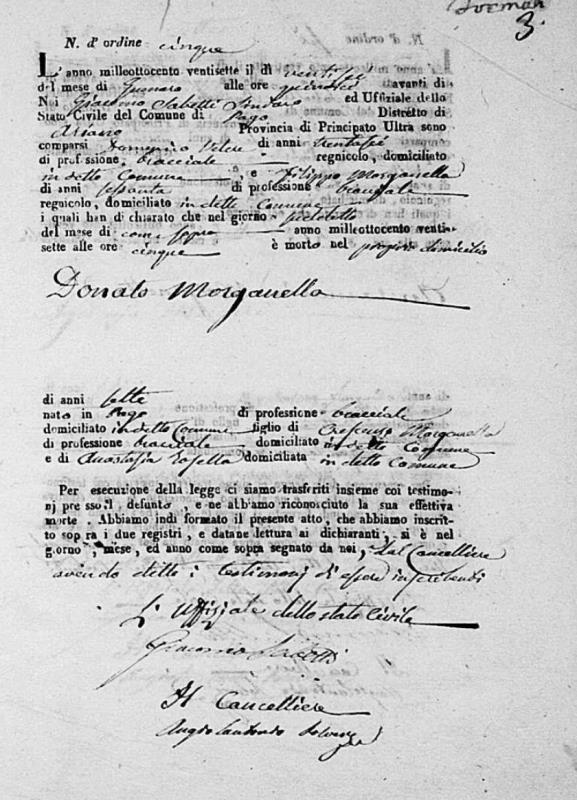 3.
N. d'ordine cinque
L'anno milleottocento ventisette il dì
del mese di Gennaro alle ore avanti di
Noi Giacomo Sindaco ed Uffiziale dello
Stato Civile del Comune di Pago Distretto di
Ariano Provincia di Principato Ultra sono
comparsi Domenico di anni
di professione bracciale regnicolo, domiciliato
in detto Comune, e Filippo Morganella
di anni sessanta di professione bracciale
regnicolo, domiciliato in detto Comune
i quali han dichiarato che nel giorno
del mese di come sopra anno milleottocento venti-
sette alle ore cinque è morto nel proprio domicilio
Donato Morganella
di anni sette
nato in Pago di professione bracciale
domiciliato in detto Comune figlio di Morganella
di professione bracciale domiciliato in detto Comune
e di Anastasia domiciliata in detto Comune
Per esecuzione della legge ci siamo trasferiti insieme coi testimo-
nj presso il defunto, e ne abbiamo riconosciuto la sua effettiva
morte. Abbiamo indi formato il presente atto, che abbiamo inscrit-
to sopra i due registri, e datane lettura ai dichiaranti, si è nel
giorno, mese, ed anno come sopra segnato da noi, dal Cancelliere
avendo detto i testimonj di essere
L'Uffiziale dello stato Civile
Giacomo
Il Cancelliere